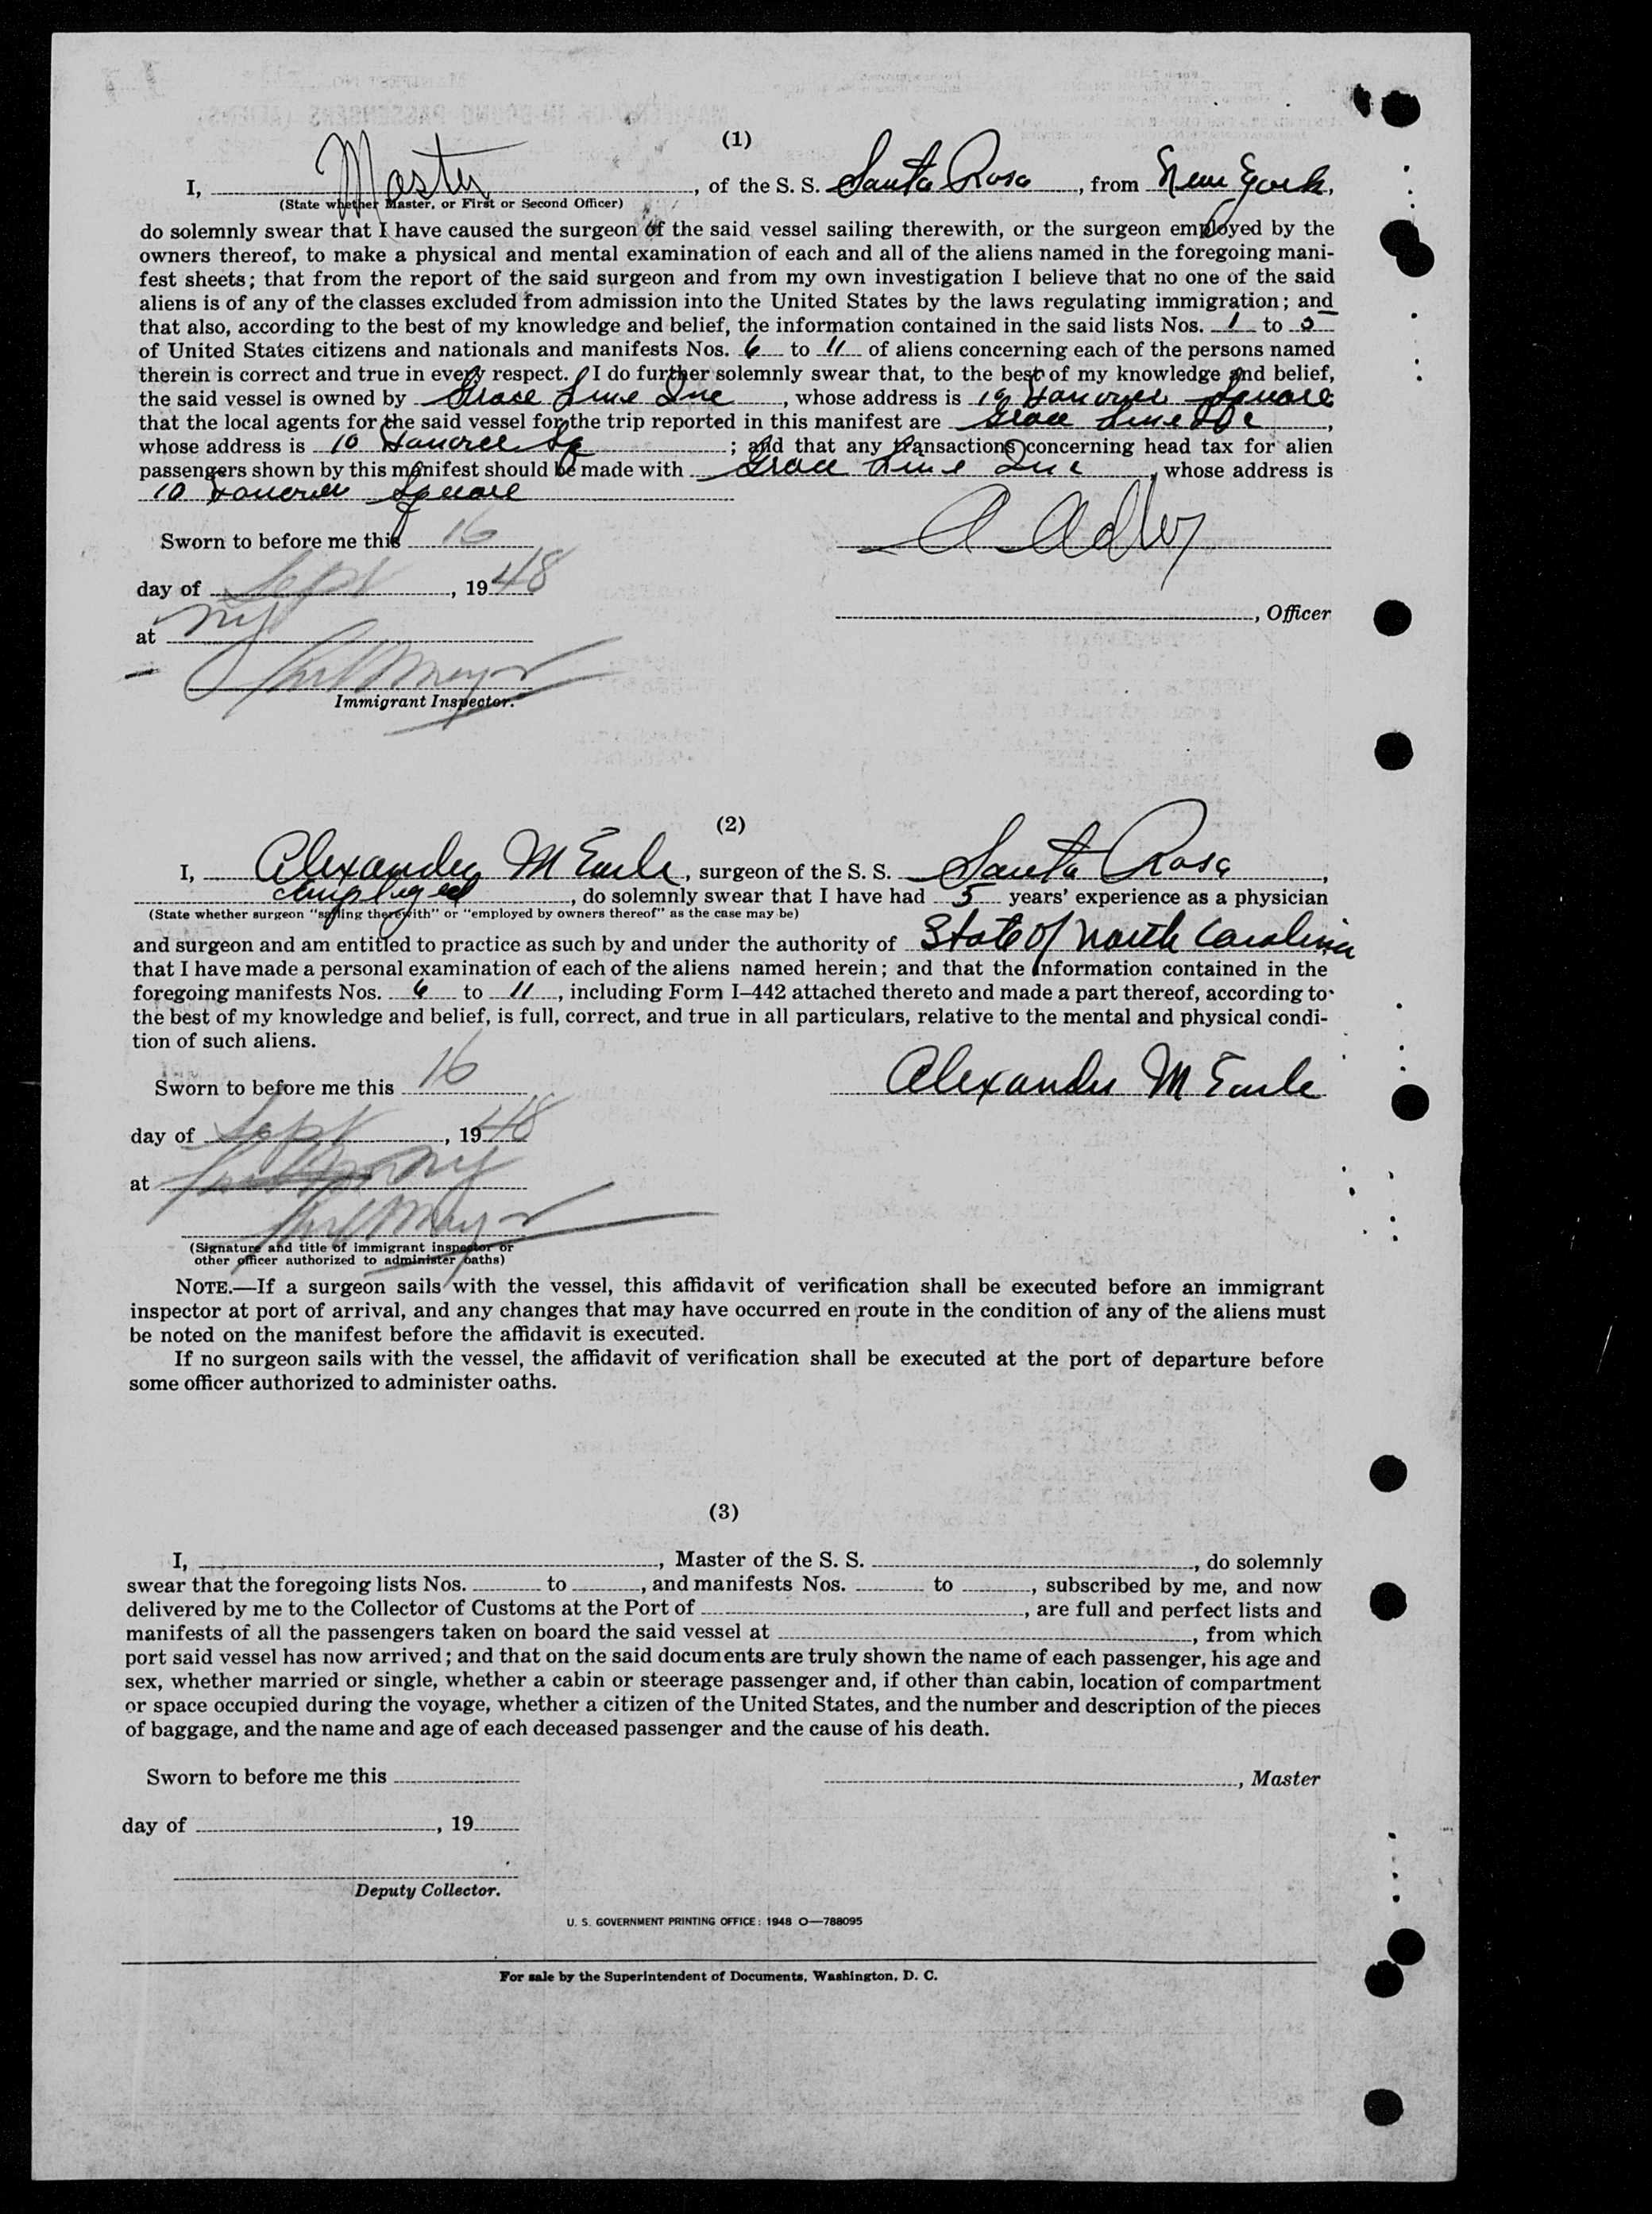 (1)
I, Master, of the S. S. Santa Rosa, from New York,
(State whether Master, or First or Second Officer)
do solemnly swear that I have caused the surgeon of the said vessel sailing therewith, or the surgeon employed by the
owners thereof, to make a physical and mental examination of each and all of the aliens named in the foregoing mani-
fest sheets; that from the report of the said surgeon and from my own investigation I believe that no one of the said
aliens is of any of the classes excluded from admission into the United States by the laws regulating immigration; and
that also, according to the best of my knowledge and belief, the information contained in the said lists Nos. 1 to 5
of United States citizens and nationals and manifests Nos. 6 to 11 of aliens concerning each of the persons named
therein is correct and true in every respect. I do further solemnly swear that, to the best of my knowledge and belief,
the said vessel is owned by Grace Line Inc, whose address is 10 Hanover Square
that the local agents for the said vessel for the trip reported in this manifest are Grace Line Inc,
whose address is 10 Hanover Sq; and that any transactions concerning head tax for alien
passengers shown by this manifest should be made with Grace Line Inc, whose address is
10 Hanover Square
Sworn to before me this 16
A Adler
day of Sept, 1948
, Officer
at NY
Immigrant Inspector.
(2)
I, Alexander M Earle, surgeon of the S. S. Santa Rosa,
employed, do solemnly swear that I have had 5 years' experience as a physician
(State whether surgeon "sailing therewith" or "employed by owners thereof" as the case may be)
and surgeon and am entitled to practice as such by and under the authority of State of North Carolina
that I have made a personal examination of each of the aliens named herein; and that the information contained in the
foregoing manifests Nos. 6 to 11, including Form I–442 attached thereto and made a part thereof, according to
the best of my knowledge and belief, is full, correct, and true in all particulars, relative to the mental and physical condi-
tion of such aliens.
Sworn to before me this 16
Alexander M Earle
day of Sept, 1948
at NY
(Signature and title of immigrant inspector or
other officer authorized to administer oaths)
NOTE.—If a surgeon sails with the vessel, this affidavit of verification shall be executed before an immigrant
inspector at port of arrival, and any changes that may have occurred en route in the condition of any of the aliens must
be noted on the manifest before the affidavit is executed.
If no surgeon sails with the vessel, the affidavit of verification shall be executed at the port of departure before
some officer authorized to administer oaths.
(3)
I, , Master of the S. S. , do solemnly
swear that the foregoing lists Nos. to , and manifests Nos. to , subscribed by me, and now
delivered by me to the Collector of Customs at the Port of , are full and perfect lists and
manifests of all the passengers taken on board the said vessel at , from which
port said vessel has now arrived; and that on the said documents are truly shown the name of each passenger, his age and
sex, whether married or single, whether a cabin or steerage passenger and, if other than cabin, location of compartment
or space occupied during the voyage, whether a citizen of the United States, and the number and description of the pieces
of baggage, and the name and age of each deceased passenger and the cause of his death.
Sworn to before me this
, Master
day of , 19
Deputy Collector.
U. S. GOVERNMENT PRINTING OFFICE: 1948 O—788095
For sale by the Superintendent of Documents, Washington, D. C.